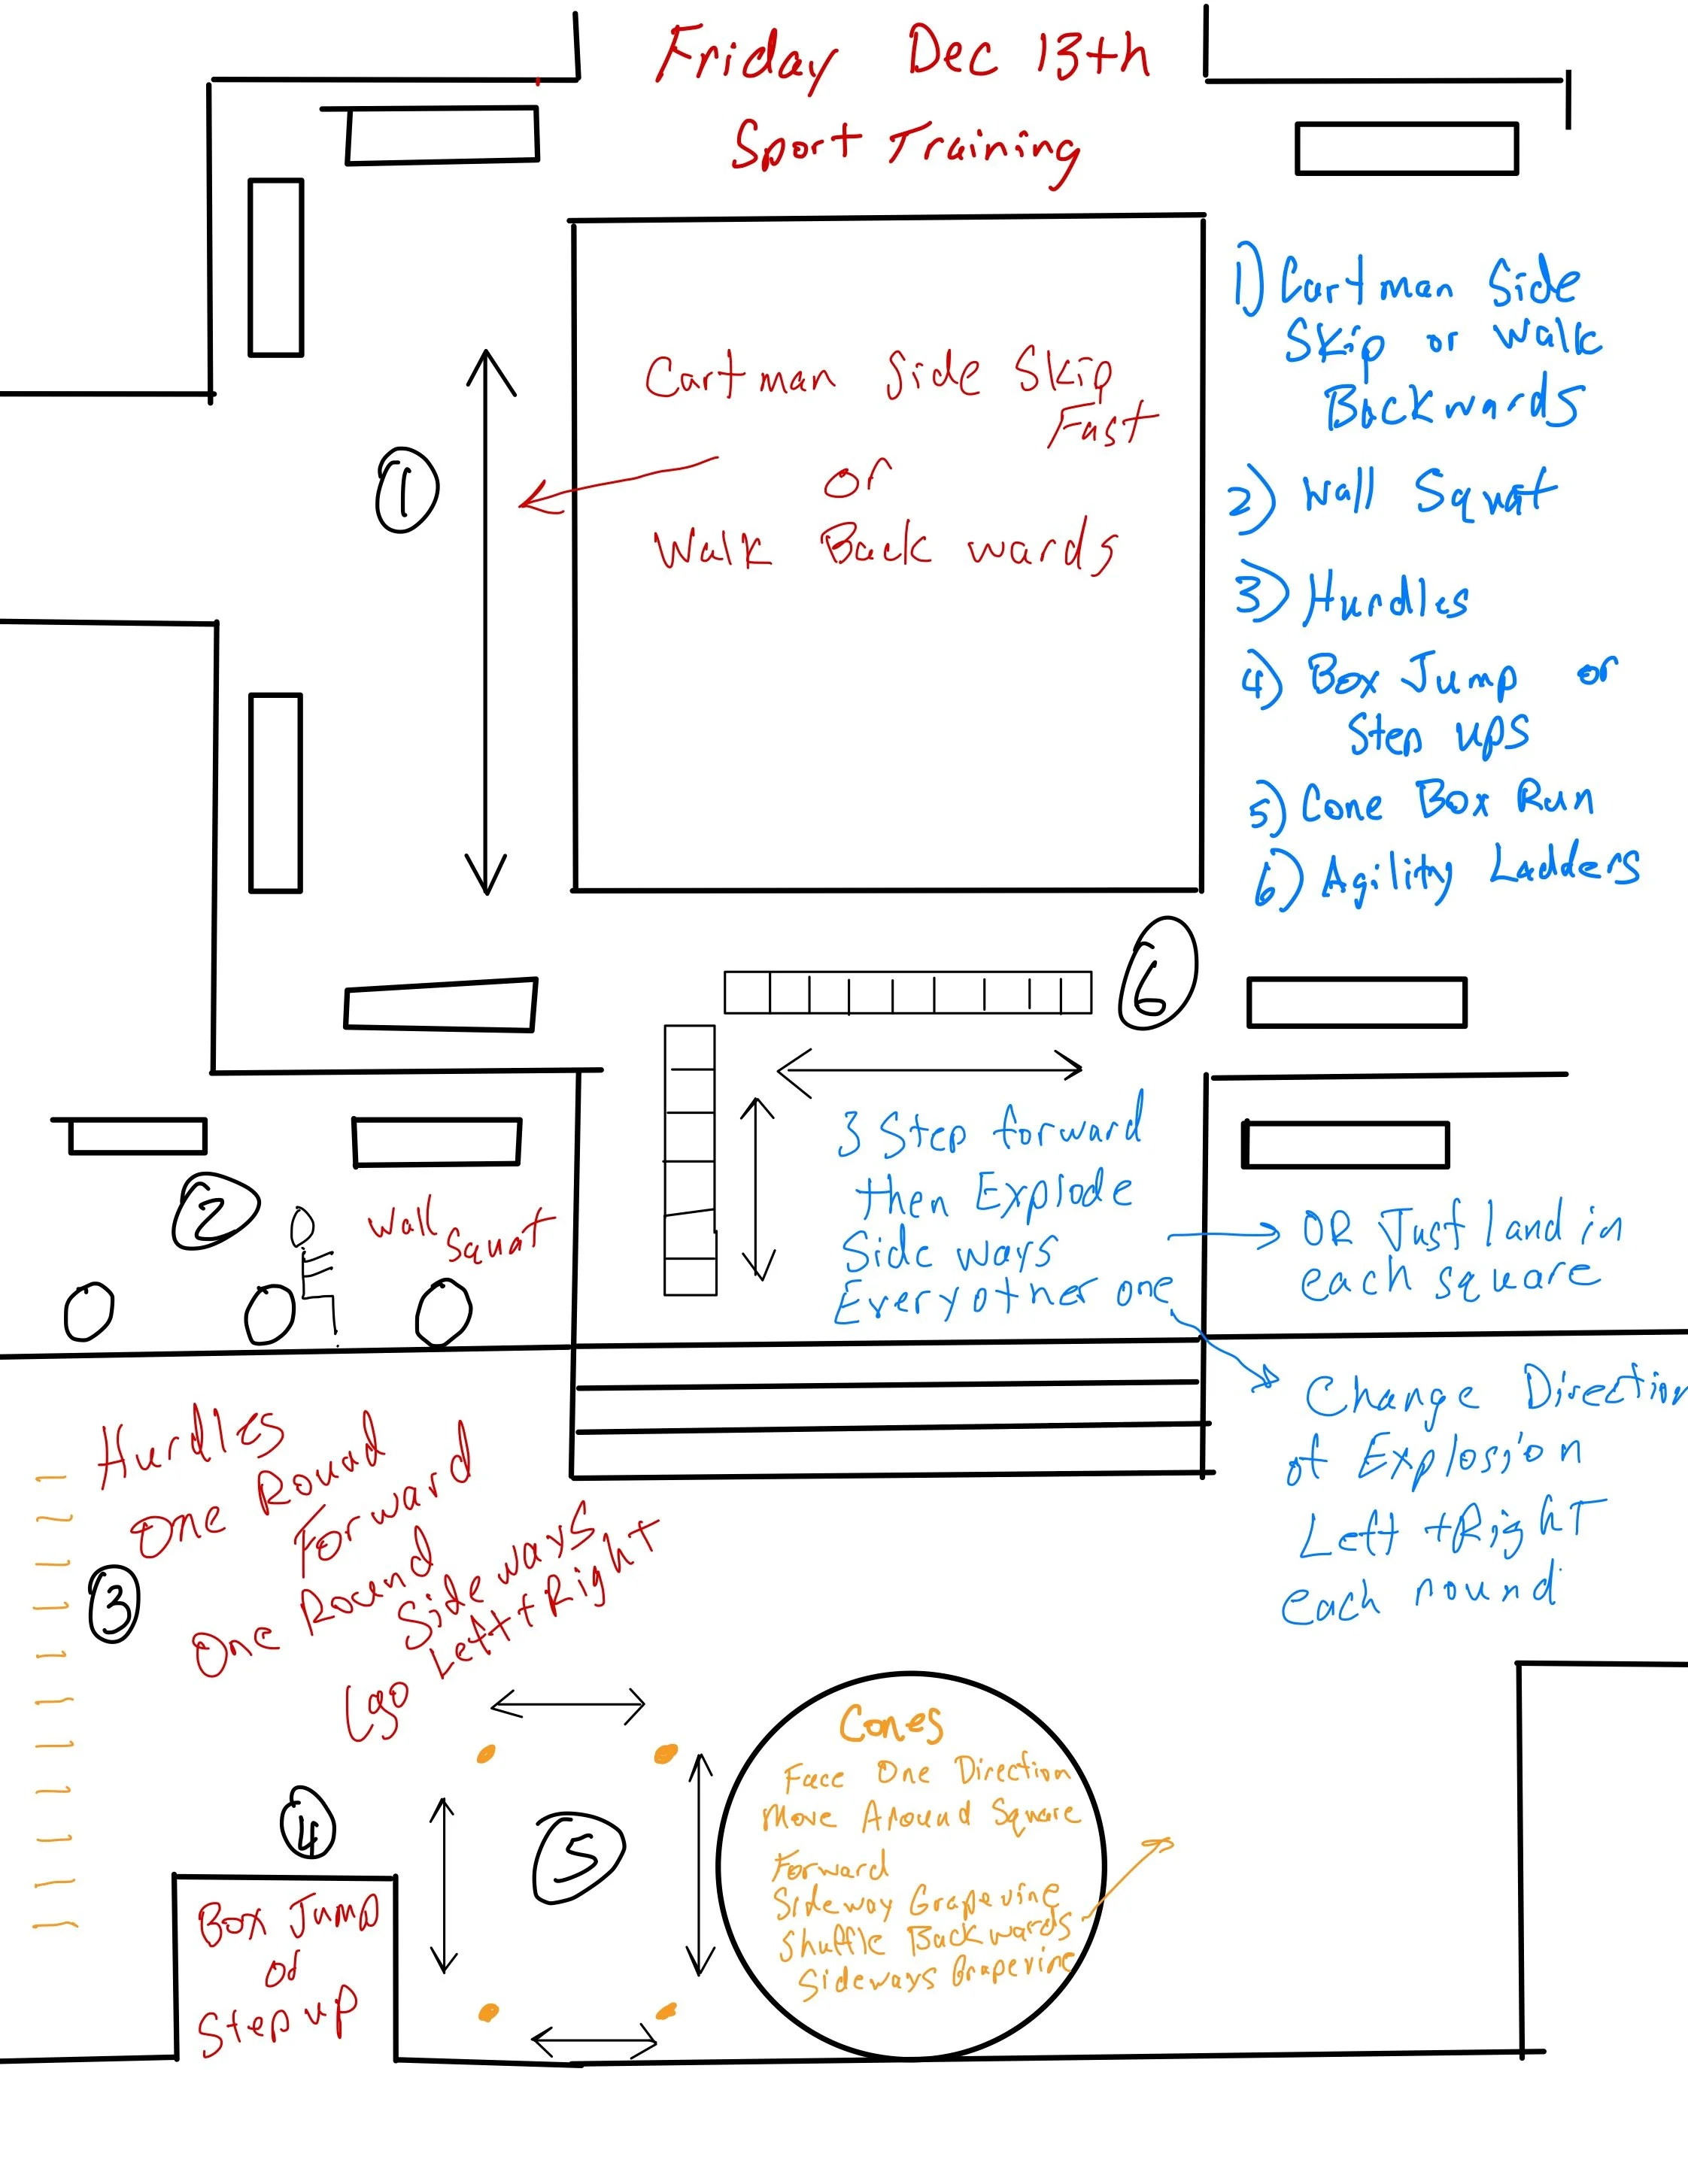 Friday Dec 13th
Sport Training
Cartman Side Skip
Fast
or
Walk Back wards
1
1) Cartman Side
Skip or Walk
Backwards
2) Wall Squat
3) Hurdles
4) Box Jump or
Step ups
5) Cone Box Run
6) Agility Ladders
6
3 Step forward
then Explode
Side ways
Every other one
OR Just land in
each square
Change Direction
of Explosion
Left + Right
each round
2
Wall
Squat
Hurdles
One Rouad
Forward
One Round
Sideways
Left + Right
3
4
Box Jump
or
Step up
5
Cones
Face One Direction
Move Around Square
Forward
Sideway Grapevine
Shuffle Backwards
Sideways Grapevine